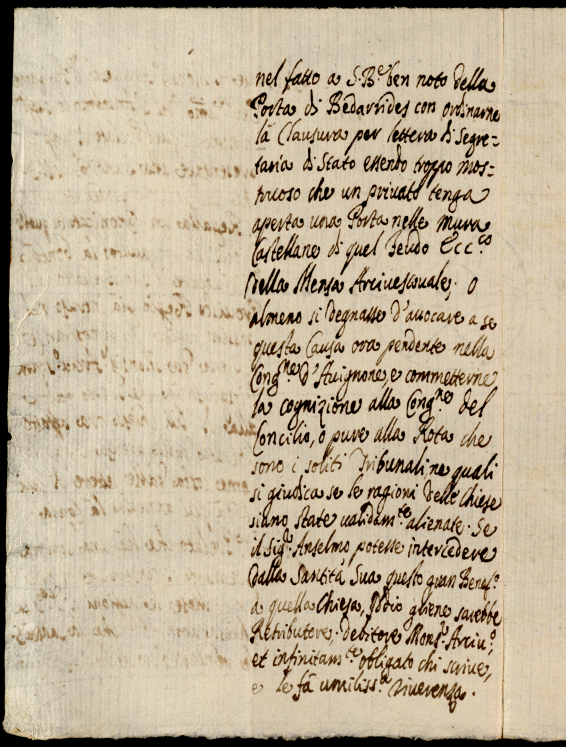 nel fatto a S. B.e ben noto della
Porta di Bedarrides con ordinarne
la Clausura per lettera di Segre=
taria di Stato essendo troppo mos=
truoso che un privato tenga
aperta una Porta nelle mura
Castellane di quel Feudo Ecc.co
della Mensa Arcivescovale; O
almeno si degnasse d'avocare a se
questa Causa ora pendente nella
Cong.ne d'Avignone, e commetterne
la cognizione alla Cong.ne del
Concilio, ò pure alla Rota che
sono i soliti Tribunali ne quali
si giudica se le ragioni delle Chiese
siano state validam.te alienate. Se
il Sig.r Anselmo potesse intercedere
dalla Santità Sua questo gran Benef.o
a quella Chiesa, Iddio gliene sarebbe
Retributore. debitore Mons.r Arciv.o,
et infinitam.te obligato chi scrive,
e le fà umiliss.a riverenza.